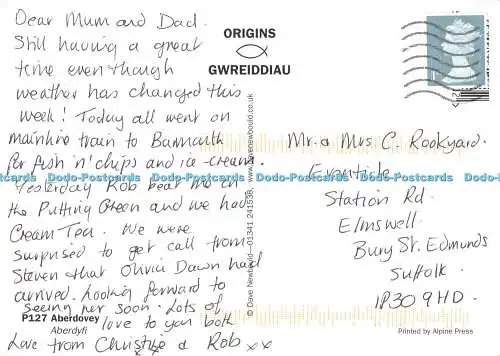 Dear Mum and Dad.
Still having a great
time even though
weather has changed this
week! Today all went on
mainline train to Barmouth
for fish 'n' chips and ice cream
Yesterday Rob beat me on
the Putting Green and we had
Cream Tea. We were
surprised to get call from
Steven that Olivia Dawn had
arrived. Looking forward to
seeing her soon. Lots of
love to you both
Love from Christine & Rob xx
P127 Aberdovey
Aberdyfi
ORIGINS
GWREIDDIAU
© Dave Newbould – 01341 241538, www.davenewbould.co.uk
Mr & Mrs C. Rookyard.
Eventide
Station Rd.
Elmswell.
Bury St. Edmunds
Suffolk.
IP30 9HD.
Printed by Alpine Press
Dodo-Postcards Dodo-Postcards Dodo-Postcards Dodo-Postcards Dodo-Postcards